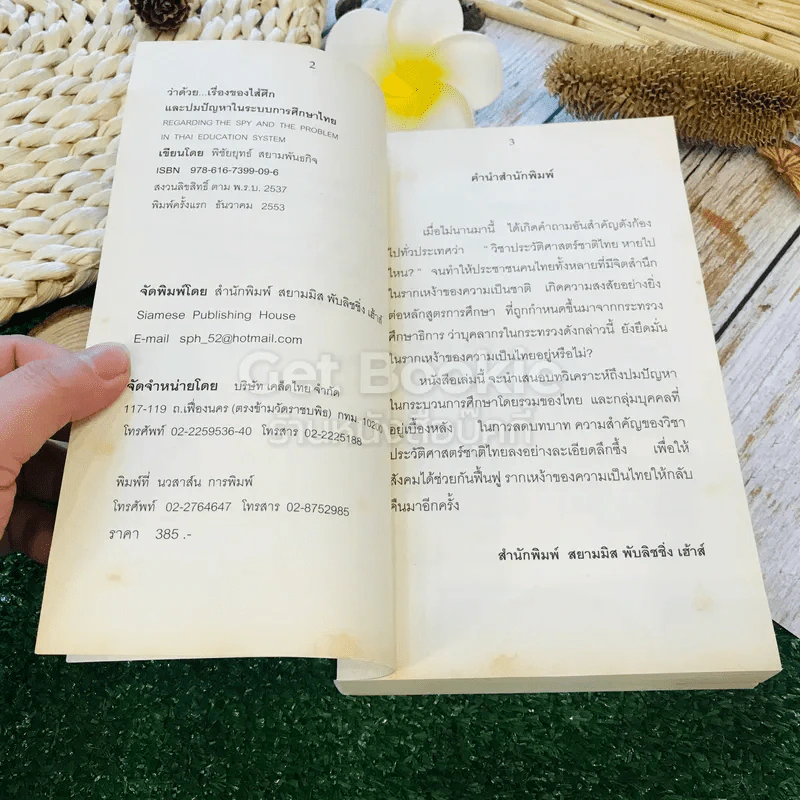 2
ว่าด้วย...เรื่องของไส้ศึก
และปมปัญหาในระบบการศึกษาไทย
REGARDING THE SPY AND THE PROBLEM
IN THAI EDUCATION SYSTEM
เขียนโดย พิชัยยุทธ์ สยามพันธกิจ
ISBN 978-616-7399-09-6
สงวนลิขสิทธิ์ ตาม พ.ร.บ. 2537
พิมพ์ครั้งแรก ธันวาคม 2553
จัดพิมพ์โดย สำนักพิมพ์ สยามมิส พับลิชซิ่ง เฮ้าส์
Siamese Publishing House
E-mail sph_52@hotmail.com
จัดจำหน่ายโดย บริษัท เคล็ดไทย จำกัด
117-119 ถ.เฟื่องนคร (ตรงข้ามวัดราชบพิธ) กทม. 10200
โทรศัพท์ 02-2259536-40 โทรสาร 02-2225188
พิมพ์ที่ นวสาส์น การพิมพ์
โทรศัพท์ 02-2764647 โทรสาร 02-8752985
ราคา 385.-
3
คำนำสำนักพิมพ์
เมื่อไม่นานมานี้ ได้เกิดคำถามอันสำคัญดังก้อง
ไปทั่วประเทศว่า " วิชาประวัติศาสตร์ชาติไทย หายไป
ไหน? " จนทำให้ประชาชนคนไทยทั้งหลายที่มีจิตสำนึก
ในรากเหง้าของความเป็นชาติ เกิดความสงสัยอย่างยิ่ง
ต่อหลักสูตรการศึกษา ที่ถูกกำหนดขึ้นมาจากกระทรวง
ศึกษาธิการ ว่าบุคลากรในกระทรวงดังกล่าวนี้ ยังยึดมั่น
ในรากเหง้าของความเป็นไทยอยู่หรือไม่?
หนังสือเล่มนี้ จะนำเสนอบทวิเคราะห์ถึงปมปัญหา
ในกระบวนการศึกษาโดยรวมของไทย และกลุ่มบุคคลที่
อยู่เบื้องหลัง ในการลดบทบาท ความสำคัญของวิชา
ประวัติศาสตร์ชาติไทยลงอย่างละเอียดลึกซึ้ง เพื่อให้
สังคมได้ช่วยกันฟื้นฟู รากเหง้าของความเป็นไทยให้กลับ
คืนมาอีกครั้ง
สำนักพิมพ์ สยามมิส พับลิชซิ่ง เฮ้าส์
Get Bookie
ร้านหนังสือบุ๊คกี้